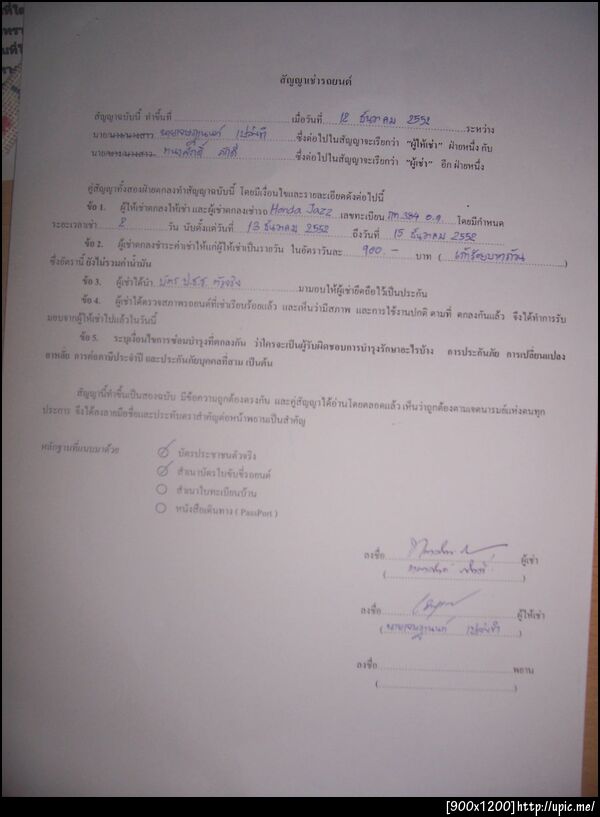 สัญญาเช่ารถยนต์
สัญญาฉบับนี้ ทำขึ้นที่ เมื่อวันที่ 12 ธันวาคม 2552 ระหว่าง
นาย/นาง/นางสาว ซึ่งต่อไปในสัญญาจะเรียกว่า "ผู้ให้เช่า" ฝ่ายหนึ่ง กับ
นาย/นาง/นางสาว ซึ่งต่อไปในสัญญาจะเรียกว่า "ผู้เช่า" อีก ฝ่ายหนึ่ง
คู่สัญญาทั้งสองฝ่ายตกลงทำสัญญาฉบับนี้ โดยมีเงื่อนไขและรายละเอียดดังต่อไปนี้
ข้อ 1. ผู้ให้เช่าตกลงให้เช่า และผู้เช่าตกลงเช่ารถ Honda Jazz เลขทะเบียน 384 โดยมีกำหนด
ระยะเวลาเช่า 2 วัน นับตั้งแต่วันที่ 13 ธันวาคม 2552 ถึงวันที่ 15 ธันวาคม 2552
ข้อ 2. ผู้เช่าตกลงชำระค่าเช่าให้แก่ผู้ให้เช่าเป็นรายวัน ในอัตราวันละ 900.- บาท ( เก้าร้อยบาทถ้วน )
ซึ่งอัตรานี้ ยังไม่รวมค่าน้ำมัน
ข้อ 3. ผู้เช่าได้นำ บัตร ป.ช.ช. ตัวจริง มามอบให้ผู้เช่ายึดถือไว้เป็นประกัน
ข้อ 4. ผู้เช่าได้ตรวจสภาพรถยนต์ที่เช่าเรียบร้อยแล้ว และเห็นว่ามีสภาพ และการใช้งานปกติ ตามที่ ตกลงกันแล้ว จึงได้ทำการรับ
มอบจากผู้ให้เช่าไปแล้วในวันนี้
ข้อ 5. ระบุเงื่อนไขการซ่อมบำรุงที่ตกลงกัน ว่าใครจะเป็นผู้รับผิดชอบการบำรุงรักษาอะไรบ้าง การประกันภัย การเปลี่ยนแปลง
อาหลั่ย การต่อภาษีประจำปี และประกันภัยบุคคลที่สาม เป็นต้น
สัญญานี้ทำขึ้นเป็นสองฉบับ มีข้อความถูกต้องตรงกัน และคู่สัญญาได้อ่านโดยตลอดแล้ว เห็นว่าถูกต้องตามเจตนารมย์แห่งตนทุก
ประการ จึงได้ลงลายมือชื่อและประทับตราสำคัญต่อหน้าพยานเป็นสำคัญ
หลักฐานที่แนบมาด้วย
บัตรประชาชนตัวจริง
สำเนาบัตรใบขับขี่รถยนต์
สำเนาใบทะเบียนบ้าน
หนังสือเดินทาง ( PassPort )
ลงชื่อ ผู้เช่า
ลงชื่อ ผู้ให้เช่า
ลงชื่อ พยาน
[900x1200]http://upic.me/